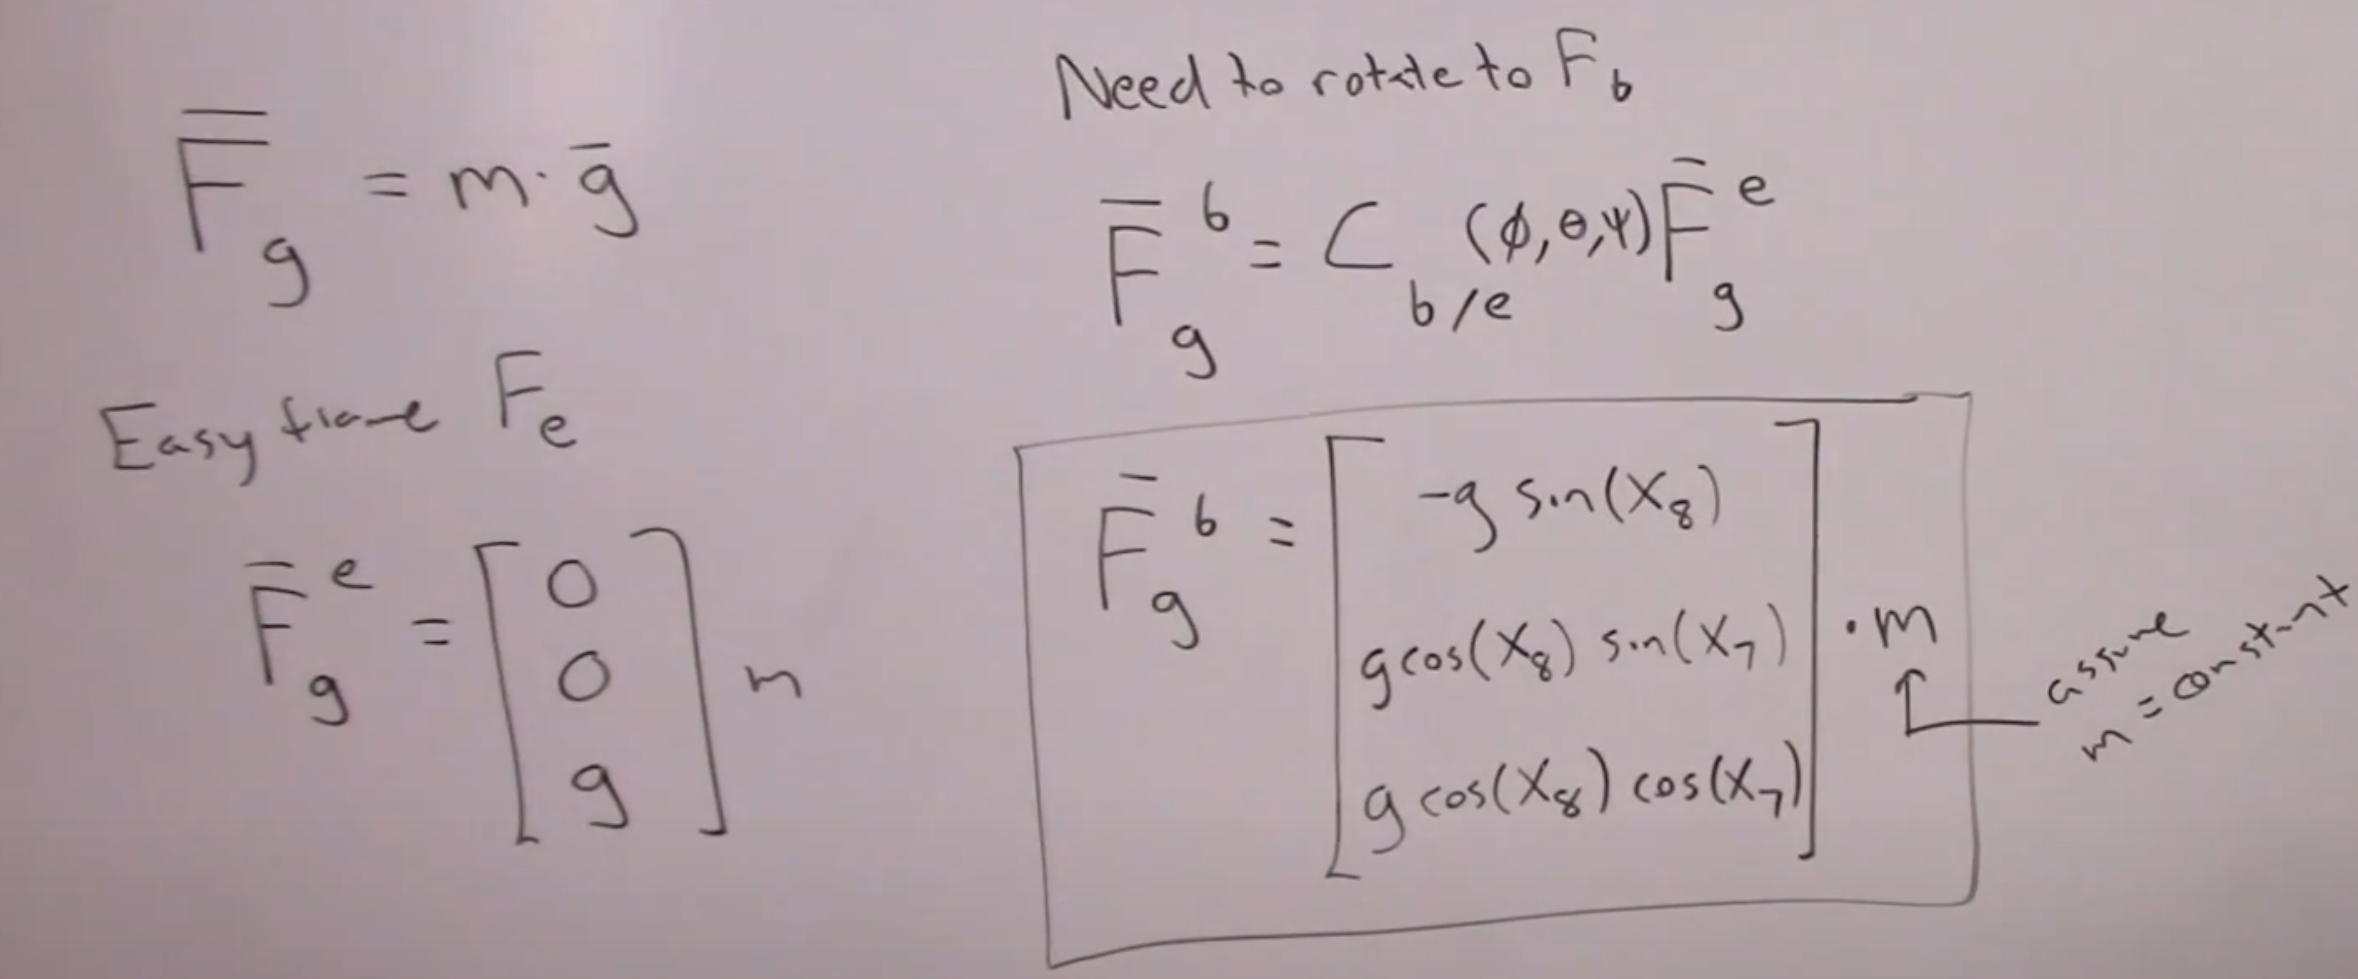 F̿_g = m · g̅
Easy frame F_e
F̅_g^e = [0
0
g] m
Need to rotate to F_b
F̅_g^b = C_b/e (ϕ,θ,ψ) F̅_g^e
F̅_g^b = [-g sin(x₈)
g cos(x₈) sin(x₇)
g cos(x₈) cos(x₇)] · m
assume
m = constant